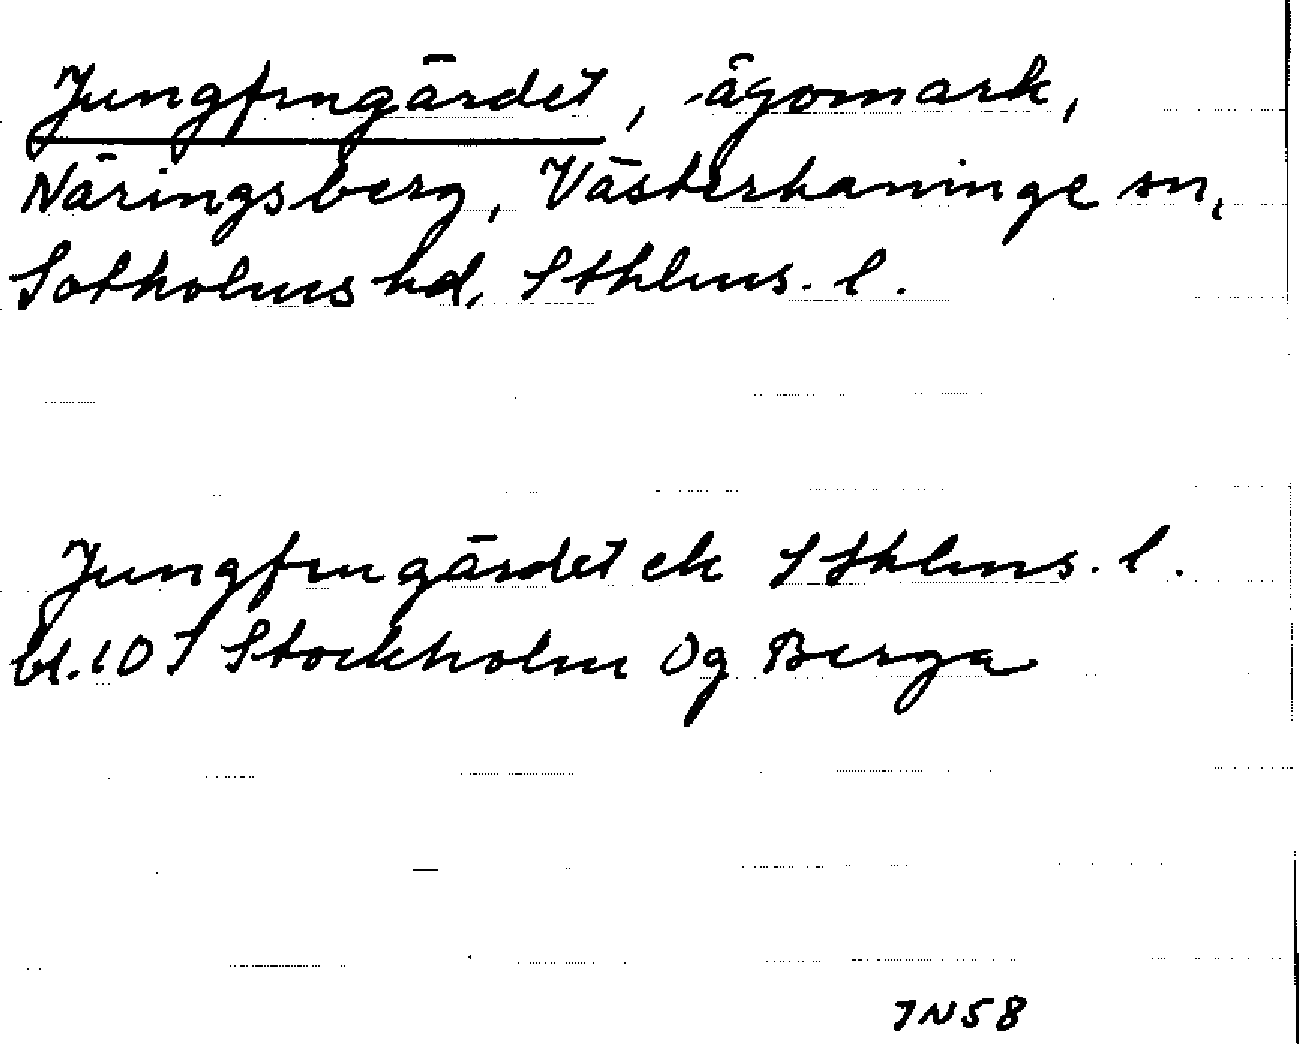 Jungfrugärdet, ägomark,
Näringsberg, Västerhaninge sn,
Sotholms hd, Sthlms. l.
Jungfrugärdet ek Sthlms. l.
bl. 10 I Stockholm Og Berga
JN58